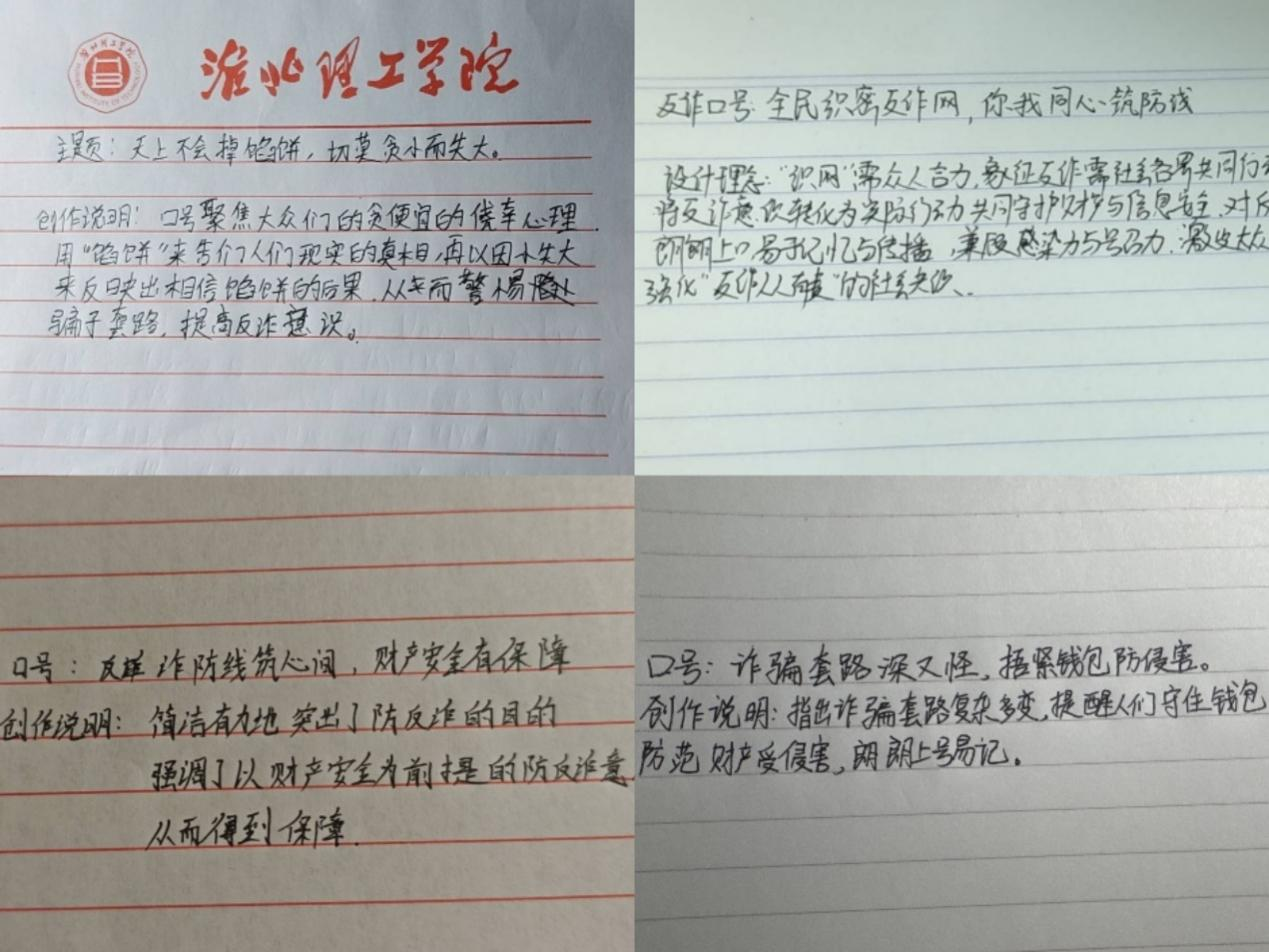 淮北理工学院
主题：天上不会掉馅饼，切莫贪小而失大。
创作说明：口号聚焦大众们的贪便宜的侥幸心理.
用“馅饼”来告们人们现实的真相,再以因小失大
来反映出相信馅饼的后果.从而警惕
骗子套路，提高反诈意识。
反诈口号:全民织密反诈网，你我同心筑防线
设计理念:“织网”需众人合力,象征反诈需社会各界共同行
将反诈意识转化为实防行动共同守护与信息安全.对
朗朗上口易于记忆与传播,兼段感染力与号召力.激发大众
强化“反诈人人有责”的社会共识.
口号：诈防线筑心间，财产安全有保障
创作说明：简洁有力地突出了防反诈的目的
强调了以财产安全为前提的防反诈意
从而得到保障.
口号：诈骗套路深又怪，捂紧钱包防侵害。
创作说明:指出诈骗套路复杂多变,提醒人们守住钱包
防范财产受侵害,朗朗上号易记。